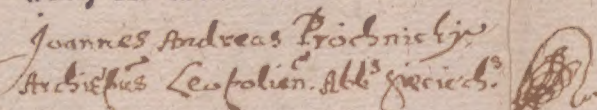 Joannes Andreas Próchnicky
Archiepus Leopolien. Abbs Sieciech.